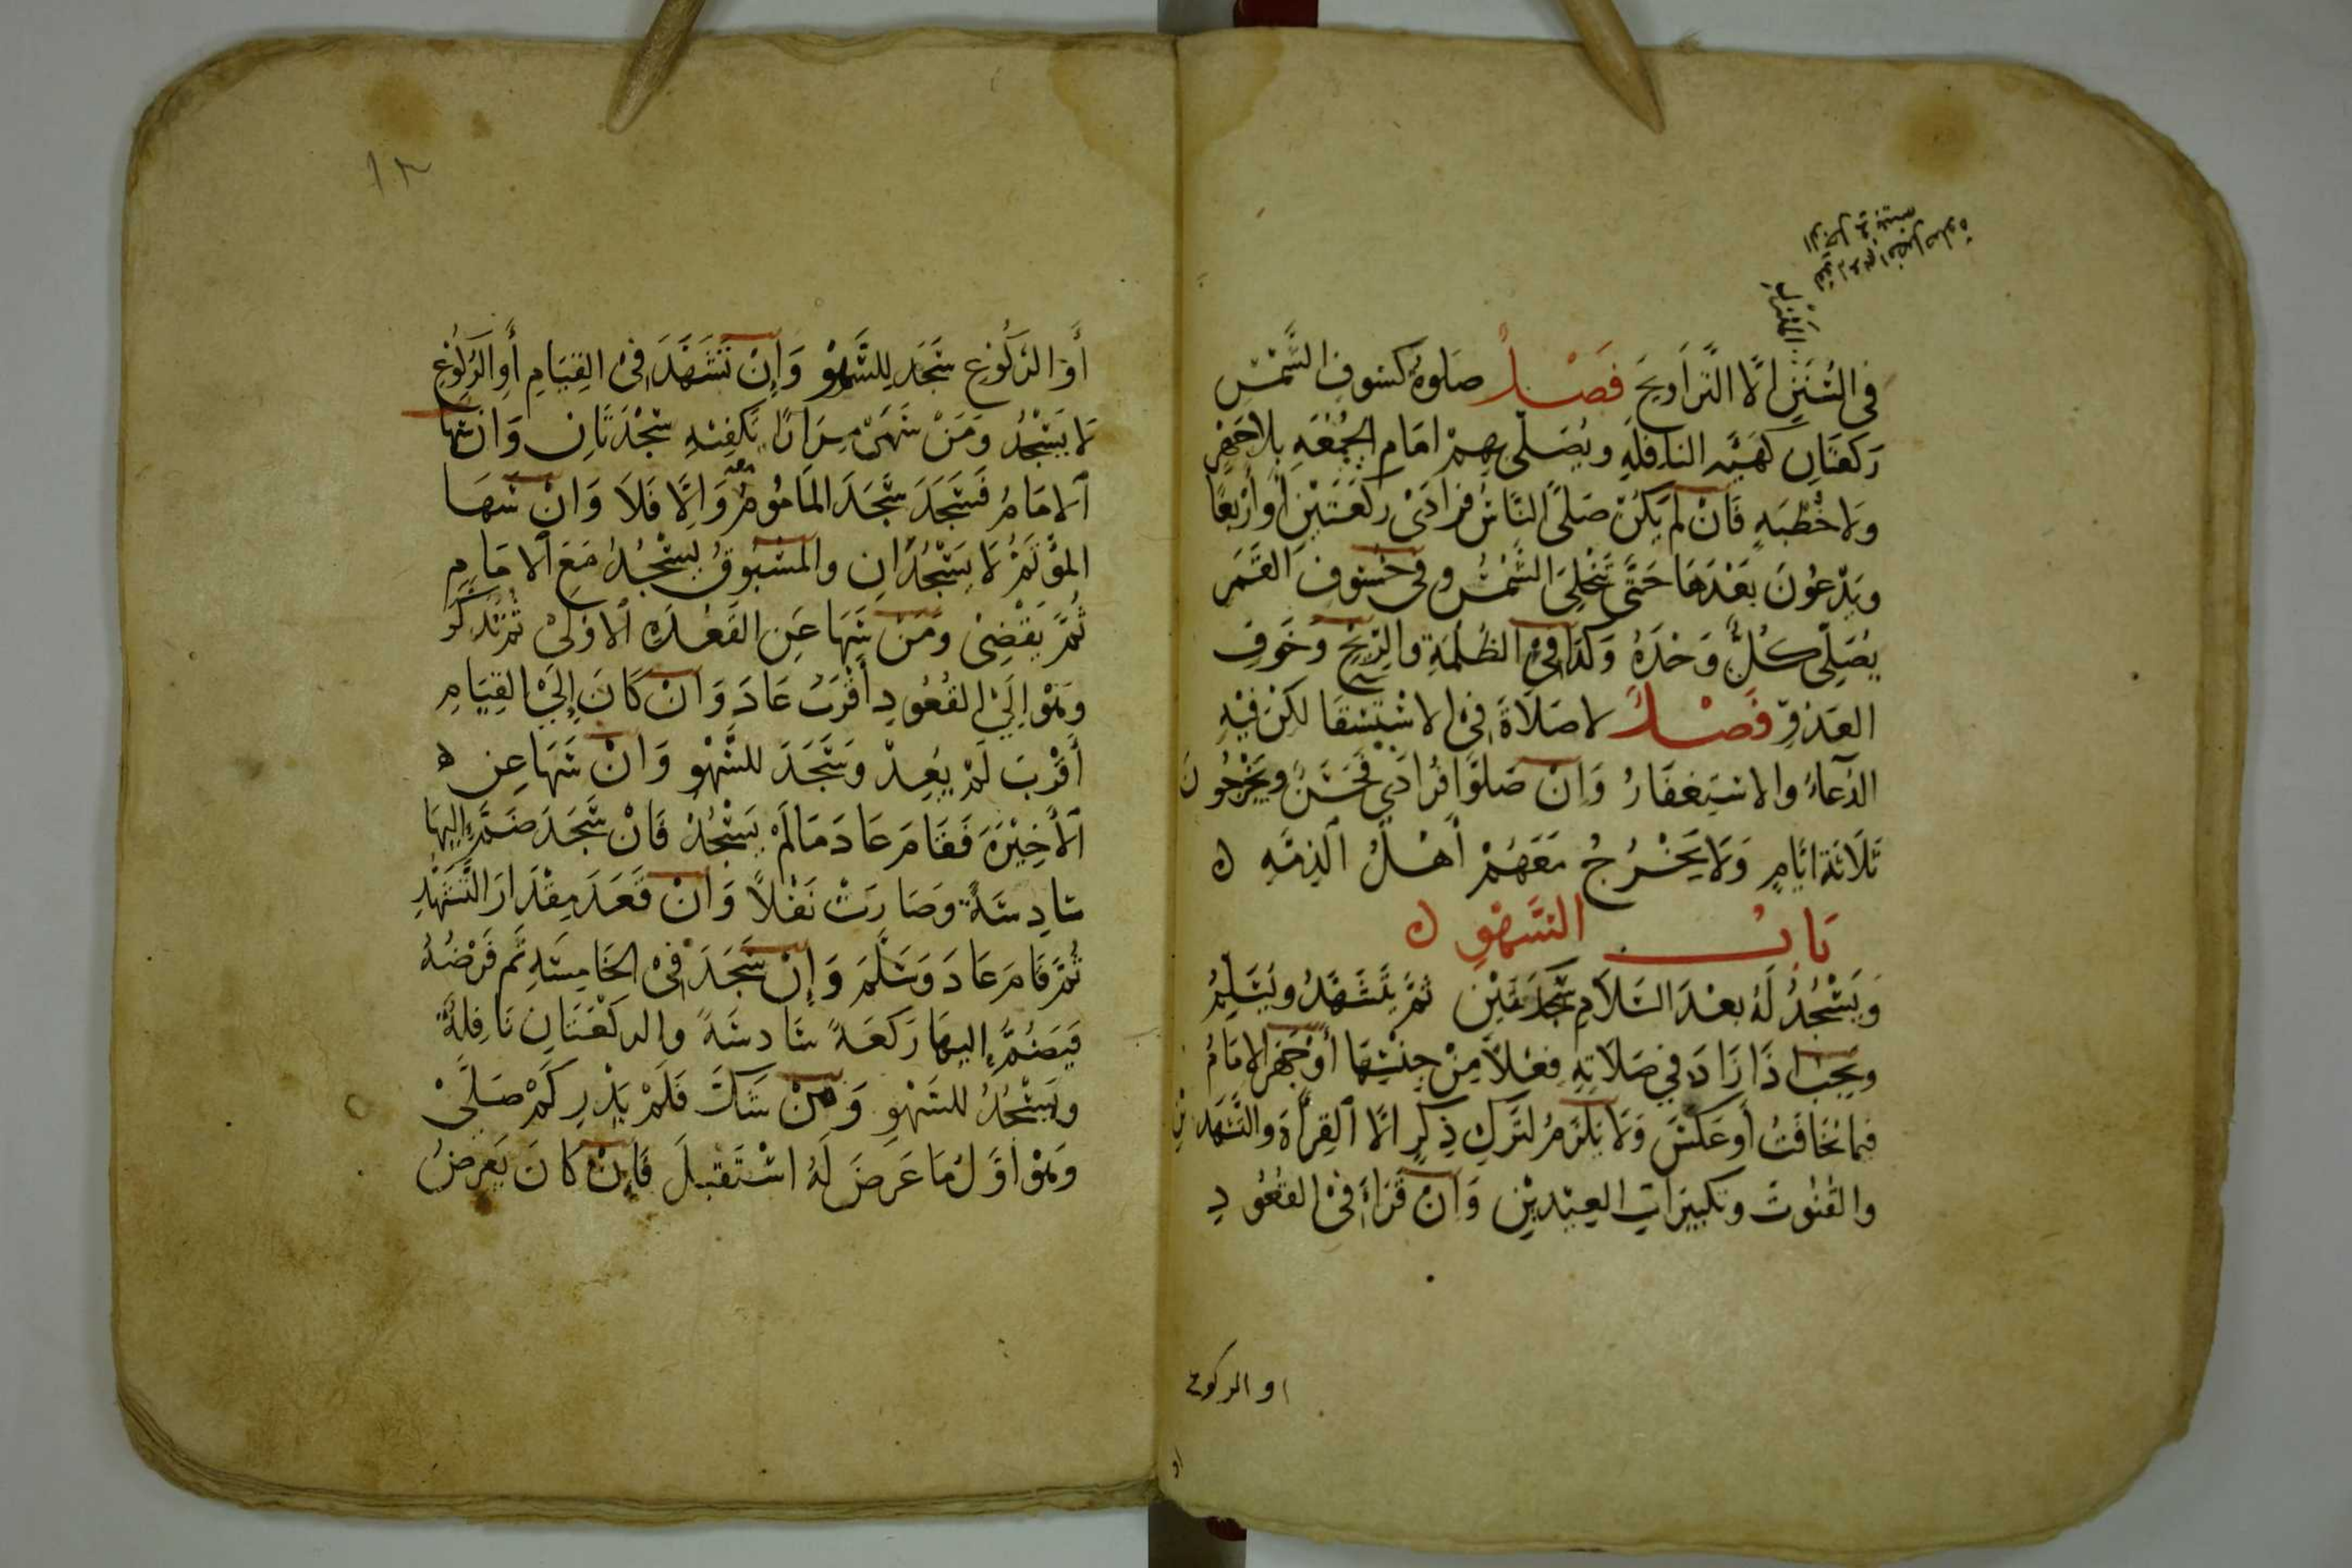 المنزل
لقوله عم افضل صلوة
الرجل في بيته
في السُّنَنِ الَّا التَّرَاويحَ فَصْلٌ صَلوةُ كسُوفِ الشَّمْسِ
رَكعَتَانِ كهَيَّةِ النافلَةِ ويُصَلّى بِهِمْ امَام الجُمُعَةِ بلاجَهْرٍ
وَلا خُطْبَةٍ فَانْ لَم يَكُنْ صَلَّى النَّاسُ فرَادَىْ ركَعَتَيْنِ أوْ أرْبعًا
ويَدْعُونَ بَعْدَهَا حَتَّى تَنْجَلِىَ الشَّمْسُ وفى خسُوفِ القَمَرِ
يُصَلِّى كُلٌّ وَحْدَهُ وَكذَا فِى الظُلمَةِ والرِّيْحِ وَخَوفِ
العَدُوِّ فَصْلٌ لا صَلَاةَ فِى الاسْتِسْقَا لكِنْ فيْهِ
الدُعَاءُ والاسْتِغفَارُ وَانْ صَلَّوا فُرَادَىْ فَحَسَنٌ ويَخْرُجُونَ
ثَلَاثَة ايَّامٍ وَلَا يَخْرُجُ مَعَهُمْ أهْلُ الذِمَّةِ
بَابُ السَّهْوِ
وَيَسْجُدُ لَهُ بعْدَ السَّلَامِ سَجْدَتَيْنِ ثُمَّ يتَشَهَّدُ ويُسَلِّمُ
ويَجِبُ اذَا زَادَ في صَلَاتِهِ فِعْلًا مِنْ جِنْسِهَا أوْ جَهَرَ الامَامُ
فيما يُخَافَتُ أو عَكَسَ وَلَا يَلزَمُ لتَركِ ذِكرٍ الَّا القِرَاةَ والتَشَهُّدَيْنِ
والقُنُوتَ وتكبيرَاتِ العِيْديْنِ وَانْ قَرَاءَ فى القُعُودِ
او الركوع
أوَ الرَكُوْعِ سَجَدَ للِسَّهْوِ وَإِنْ تَشَهَّدَ فىْ القِيَامِ أوِ الرُكُوْعِ
لَا يَسْجُدُ ومَنْ سَهَىْ مِرَارًا تَكفِيْهِ سَجْدَتَانِ وَاذا سَهَا
الامَامُ فَسَجَدَ سَجَدَ المَامُومُ معه وَالَّا فَلَا وَانْ سَهَا
المُؤْتَمُّ لَا يَسْجُدَانِ والمَسْبُوقُ يَسْجُدُ مَعَ الامَامِ
ثُمَّ يَقْضِىْ ومَنْ سَهَا عَنِ القَعْدَةِ الاوْلىْ ثم تذكّرَ
وَهْوَ اِلَى القُعُودِ أقْرَبُ عَادَ وَانْ كَانَ إلَىْ القِيَامِ
أَقْرَبَ لَمْ يَعُدْ وسَجَدَ للسَّهْوِ وَانْ سَهَا عَنِ
الأخِيْرَة فَقَامَ عَادَ مَالَمْ يَسْجُدْ فَانْ سَجَدَ ضَمَّ إليهَا
سَادِسَةً وَصَارَتْ نَفْلًا وَانْ قَعَدَ مِقْدَارَ التَّشَهُّدِ
ثُمَّ قَامَ عَادَ وَسَلَّمَ وَإِنْ سَجَدَ فىْ الخَامِسَةِ تَم فَرْضُهُ
فَيَضُمُّ اليهَا رَكعَةً سَادسَةً والركْعَتَانِ نَافِلَةٌ
ويَسْجُدُ للسَهْوِ وَمَنْ شَكَّ فَلَمْ يَدْرِ كَمْ صَلَّىْ
وَهْوَ اوَّلُ مَا عَرَضَ لَهُ اسْتَقبلَ فَإنْ كَانَ يَعرِضُ